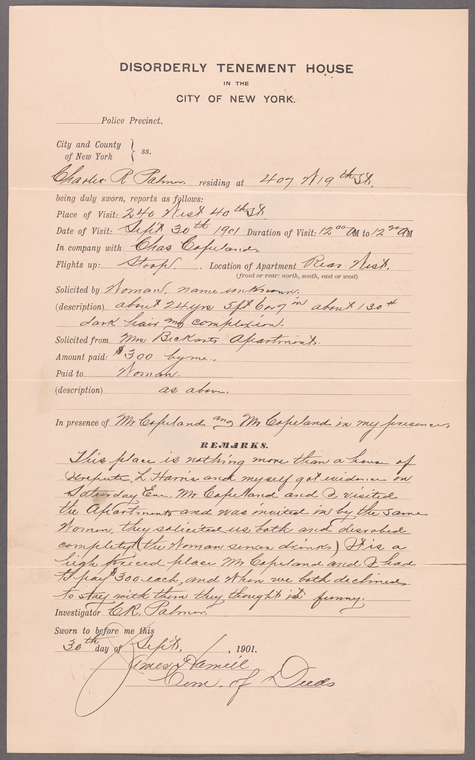 DISORDERLY TENEMENT HOUSE
IN THE
CITY OF NEW YORK.
Police Precinct.
City and County
of New York } ss.
Charles R Palmer residing at 407 W 19th St.
being duly sworn, reports as follows:
Place of Visit: 240 West 40th St.
Date of Visit: Sept 30th 1901 Duration of Visit: 12 00 AM to 12 20 AM
In company with Chas Copeland
Flights up: Stoop. Location of Apartment Rear West.
(front or rear: north, south, east or west)
Solicited by Woman, name unknown.
(description) about 24 yrs 5 ft 6 or 7 in about 130 #
dark hair and complexion.
Solicited from Mrs Apartments.
Amount paid: $3 00 by me.
Paid to Woman.
(description) as above.
In presence of Mr Copeland and Mr Copeland in my presence
REMARKS.
This place is nothing more than a house of
L Harris and myself got evidence on
Saturday Eve. Mr Copeland and I visited
the Apartments and was invited in by the same
Women, they solicited us both and disrobed
completely (the Woman serves drinks) It is a
high priced place Mr Copeland and I had
to pay $3 00 each, and when we both declined
to stay with them they thought it funny.
Investigator C.R. Palmer.
Sworn to before me this
30th day of Sept., 1901.
James
Com. of Deeds